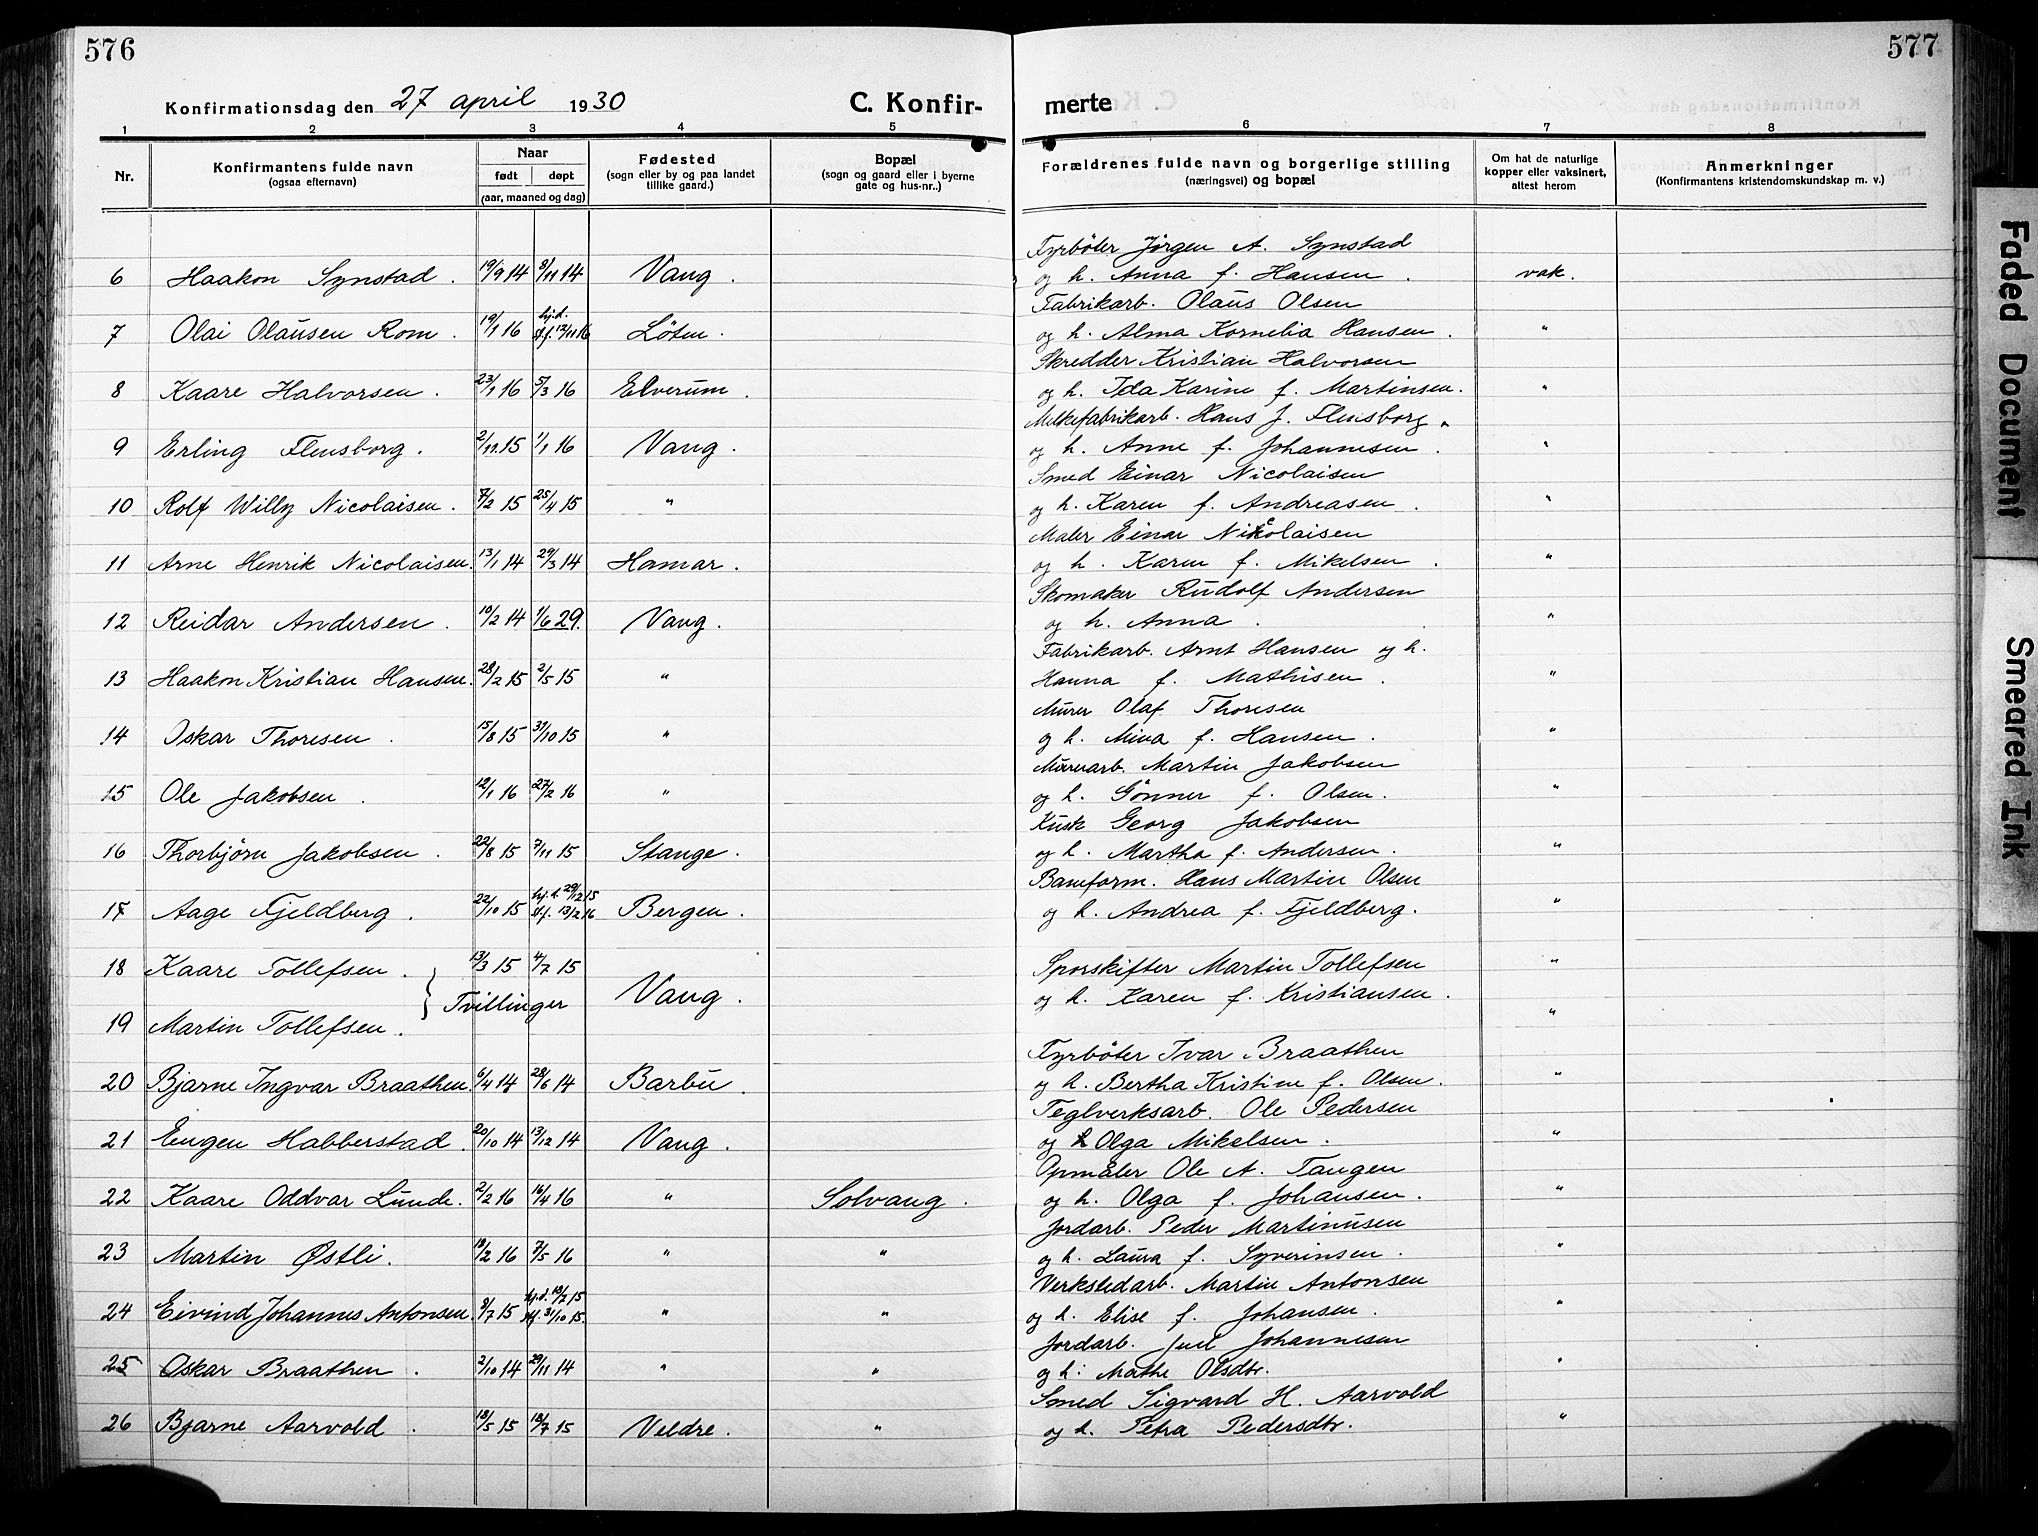 576
577
Konfirmationsdag den 27 april 1930
C. Konfir-
merte
1 2 3 4 5 6 7 8
Nr.
Konfirmantens fulde navn
(ogsaa efternavn)
Naar
født døpt
(aar, maaned og dag)
Fødested
(sogn eller by og paa landet
tillike gaard.)
Bopæl
(sogn og gaard eller i byerne
gate og hus-nr.)
Forældrenes fulde navn og borgerlige stilling
(næringsvei) og bopæl
Om hat de naturlige
kopper eller vaksinert,
attest herom
Anmerkninger
(Konfirmantens kristendomskundskap m. v.)
Fyrbøter Jørgen A. Synstad
6 Haakon Synstad. 19/9 14 8/11 14 Vang. og h. Anna f. Hansen. vak.
Fabrikarb. Olaus Olsen
7 Olai Olausen Rom. 19/1 16 hj.d. st.f. 12/11 16 Løten. og h. Alma Kornelia Hansen. "
Skredder Kristian Halvorsen
8 Kaare Halvorsen. 23/1 16 5/3 16 Elverum. og h. Ida Karine f. Martinsen. "
Melkefabrikarb. Hans J. Flensborg
9 Erling Flensborg. 2/11 15 1/1 16 Vang. og h. Anne f. Johannesen. "
Smed Einar Nicolaisen
10 Rolf Willy Nicolaisen. 7/2 15 25/4 15 " og h. Karen f. Andreasen. "
Maler Einar Nicolaisen
11 Arne Henrik Nicolaisen. 13/1 14 29/3 14 Hamar. og h. Karen f. Mikelsen. "
Skomaker Rudolf Andersen
12 Reidar Andersen. 10/2 14 1/6 29. Vang. og h. Anna. "
Fabrikarb. Arnt Hansen og h.
13 Haakon Kristian Hansen. 28/2 15 2/5 15 " Hanna f. Mathisen. "
Murer Olaf Thoresen
14 Oskar Thoresen. 15/8 15 31/10 15 " og h. Mina f. Hansen. "
Murerarb. Martin Jakobsen
15 Ole Jakobsen. 12/1 16 27/2 16 " og h. Gønner f. Olsen. "
Kusk Georg Jakobsen
16 Thorbjørn Jakobsen. 22/8 15 7/11 15 Stange. og h. Martha f. Andersen. "
Baneform. Hans Martin Olsen
17 Aage Fjeldberg. 22/10 15 hj.d. 29/12 15 st.f. 13/2 16 Bergen. og h. Andrea f. Fjeldberg. "
18 Kaare Tollefsen. 13/3 15 4/7 15 Sporskifter Martin Tollefsen "
} Tvillinger Vang. og h. Karen f. Kristiansen.
19 Martin Tollefsen. "
Fyrbøter Ivar Braathen
20 Bjarne Ingvar Braathen. 6/4 14 28/6 14 Barbu. og h. Bertha Kristine f. Olsen. "
Teglverksarb. Ole Pedersen
21 Eugen Habberstad. 20/10 14 13/12 14 Vang. og h Olga Mikelsen. "
Opmåler Ole A. Tangen
22 Kaare Oddvar Lunde. 2/2 16 16/4 16 " Solvang. og h. Olga f. Johansen. "
Jordarb. Peder Martinusen
23 Martin Østli. 19/2 16 7/5 16 " " og h. Laura f. Syverinsen. "
Verkstedarb. Martin Antonsen
24 Eivind Johannes Antonsen. 9/7 15 hj.d. 19/7 15 st.f. 31/10 15. " " og h. Elise f. Johansen. "
Jordarb. Juel Johannesen
25 Oskar Braathen. 2/10 14 29/11 14 " " og h. Mathe Olsdtr. "
Smed Sigvard H. Aarvold
26 Bjarne Aarvold. 13/5 15 18/7 15 Veldre. " og h. Petra Pedersdtr. "
Faded Document
Smeared Ink